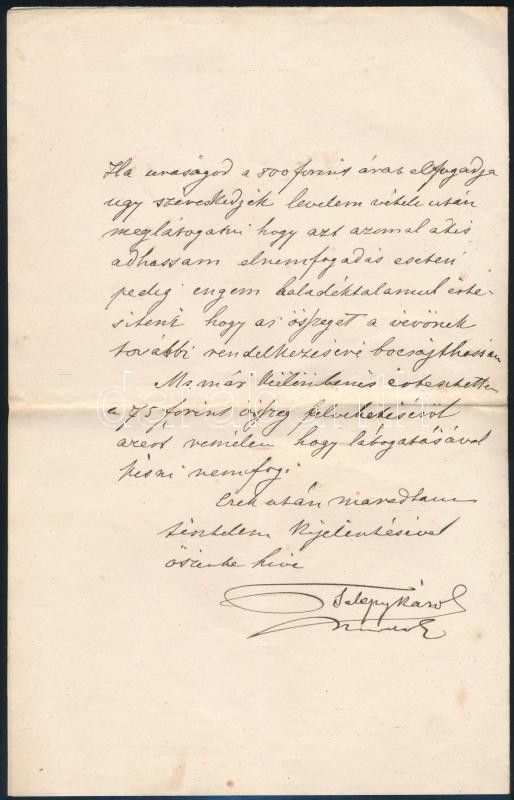 Ha uraságod a 800 forint árat elfogadja
ugy sziveskedjék levelem vétele után
meglátogatni hogy azt azonal átis
adhassam elnemfogadás eseten
pedig engem haladéktalanul érte-
siteni hogy az öszeget a vevőnek
további rendelkezésére bocsájthassam
Ma már külömbenis értesitettem
a 75 forint öszeg felvételéséröl
azért remélem hogy látogatásával
késni nemfog.
Ezek után maradtam
tisztelem kijelentésével
öszinte hive
Telepy Károly
darabanth